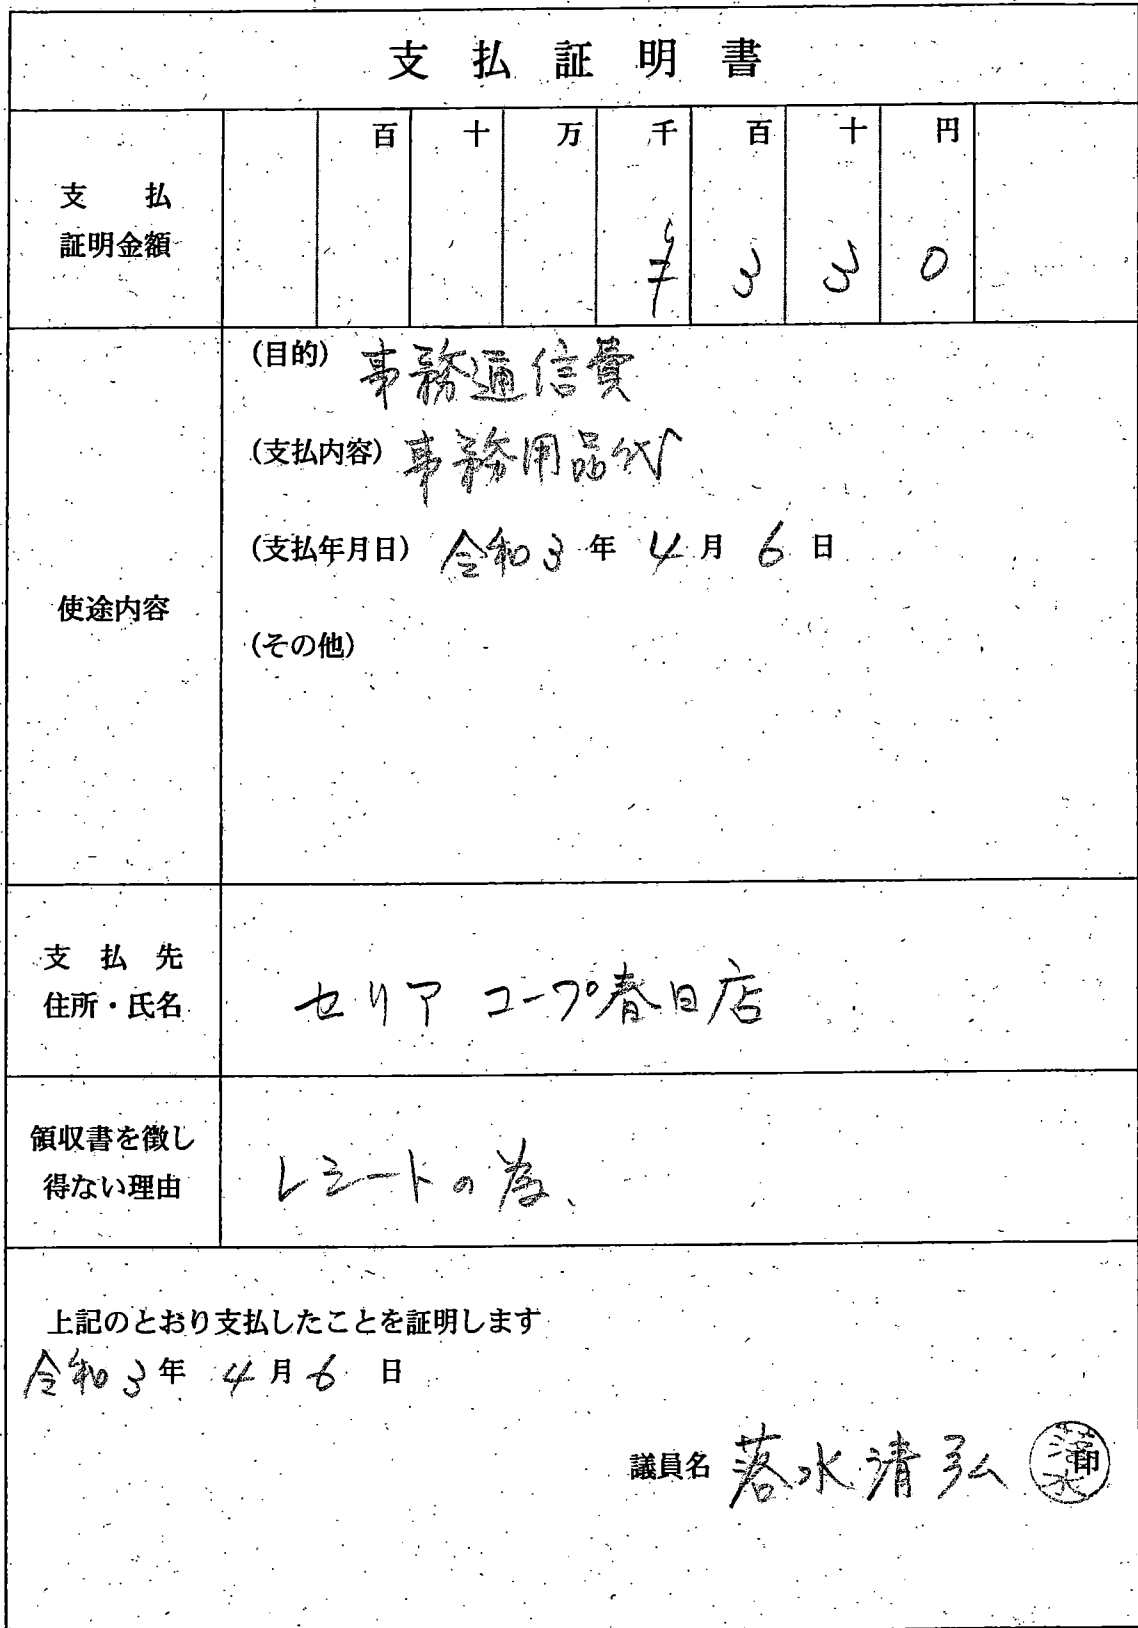 支払証明書
百 十 万 千 百 十 円
支払
証明金額
¥ 3 3 0
(目的) 事務通信費
(支払内容) 事務用品代
(支払年月日) 令和3年4月6日
使途内容
(その他)
支払先
住所・氏名
セリア コープ春日店
領収書を徴し
得ない理由
レシートの為、
上記のとおり支払したことを証明します
令和3年4月6日
議員名 落水清弘 印